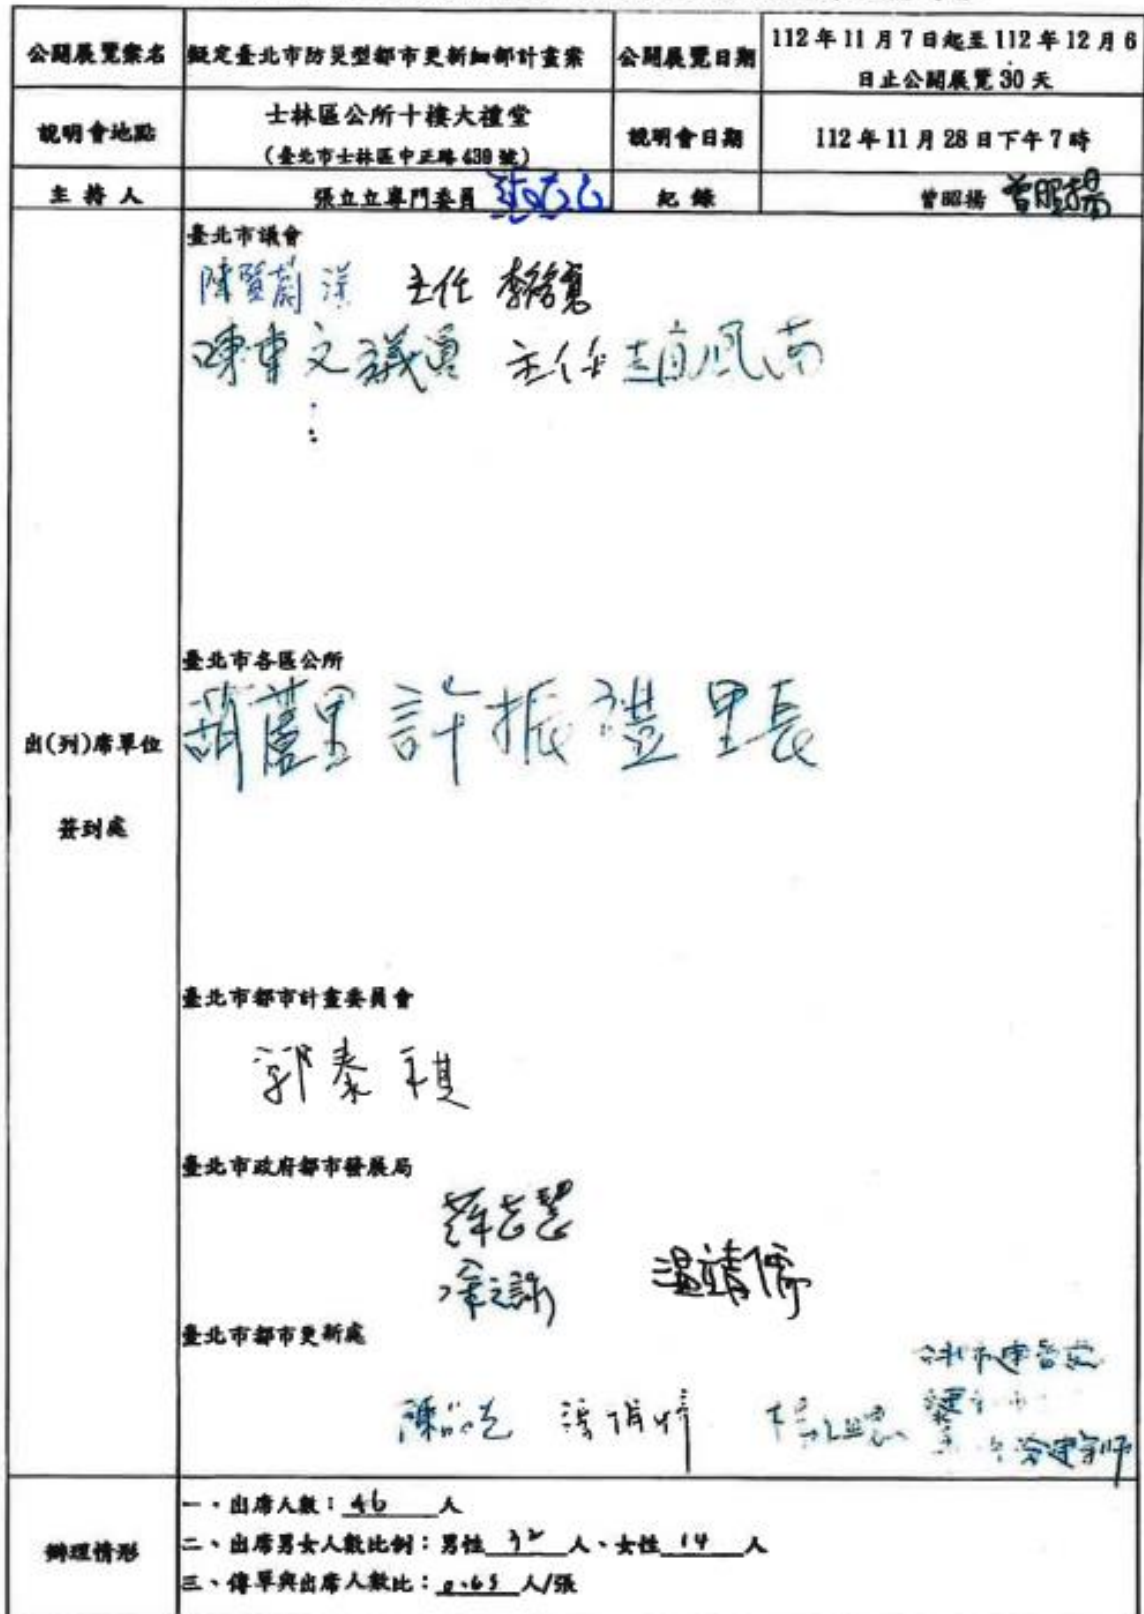 公開展覽案名
擬定臺北市防災型都市更新細部計畫案
公開展覽日期
112年11月7日起至112年12月6
日止公開展覽30天
說明會地點
士林區公所十樓大禮堂
(臺北市士林區中正路439號)
說明會日期
112年11月28日下午7時
主持人
張立立專門委員
紀錄
曾昭揚 曾昭揚
出(列)席單位
簽到處
臺北市議會
陳賢蔚 主任 李
陳重文議員 主任 趙鳳南
臺北市各區公所
葫蘆里 許振 里長
臺北市都市計畫委員會
郭泰祺
臺北市政府都市發展局
溫靖儒
臺北市都市更新處
辦理情形
一、出席人數:46人
二、出席男女人數比例:男性32人、女性14人
三、傳單與出席人數比:0.65人/張